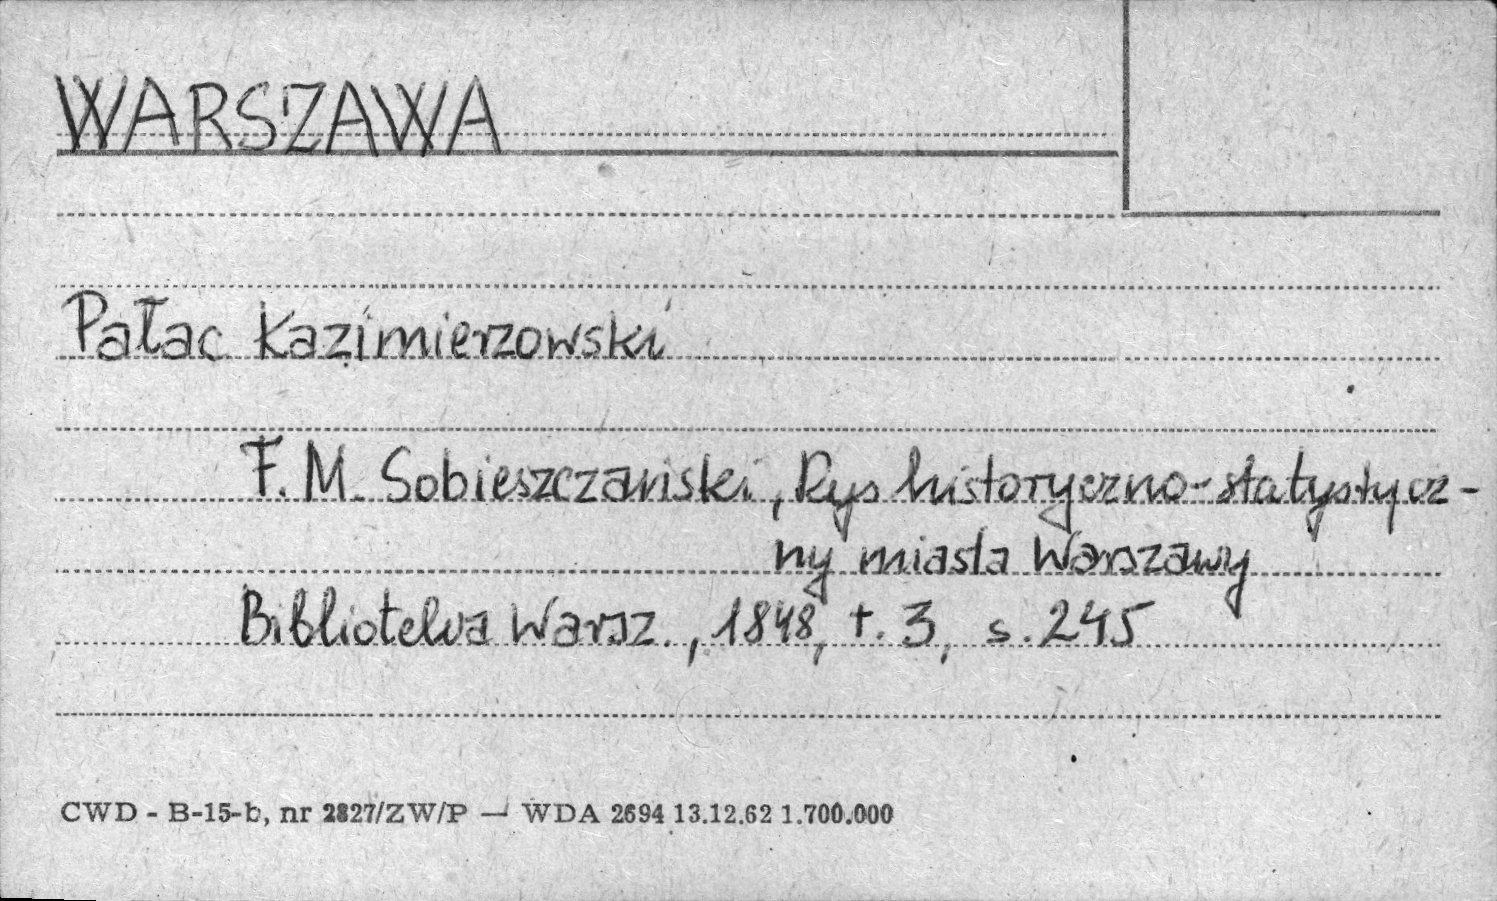 WARSZAWA
Pałac Kazimierzowski
F. M. Sobieszczański, Rys historyczno-statystycz-
ny miasta Warszawy
Biblioteka Warsz., 1848, t. 3, s. 245
CWD - B-15-b, nr 2827/ZW/P — WDA 2694 13.12.62 1.700.000